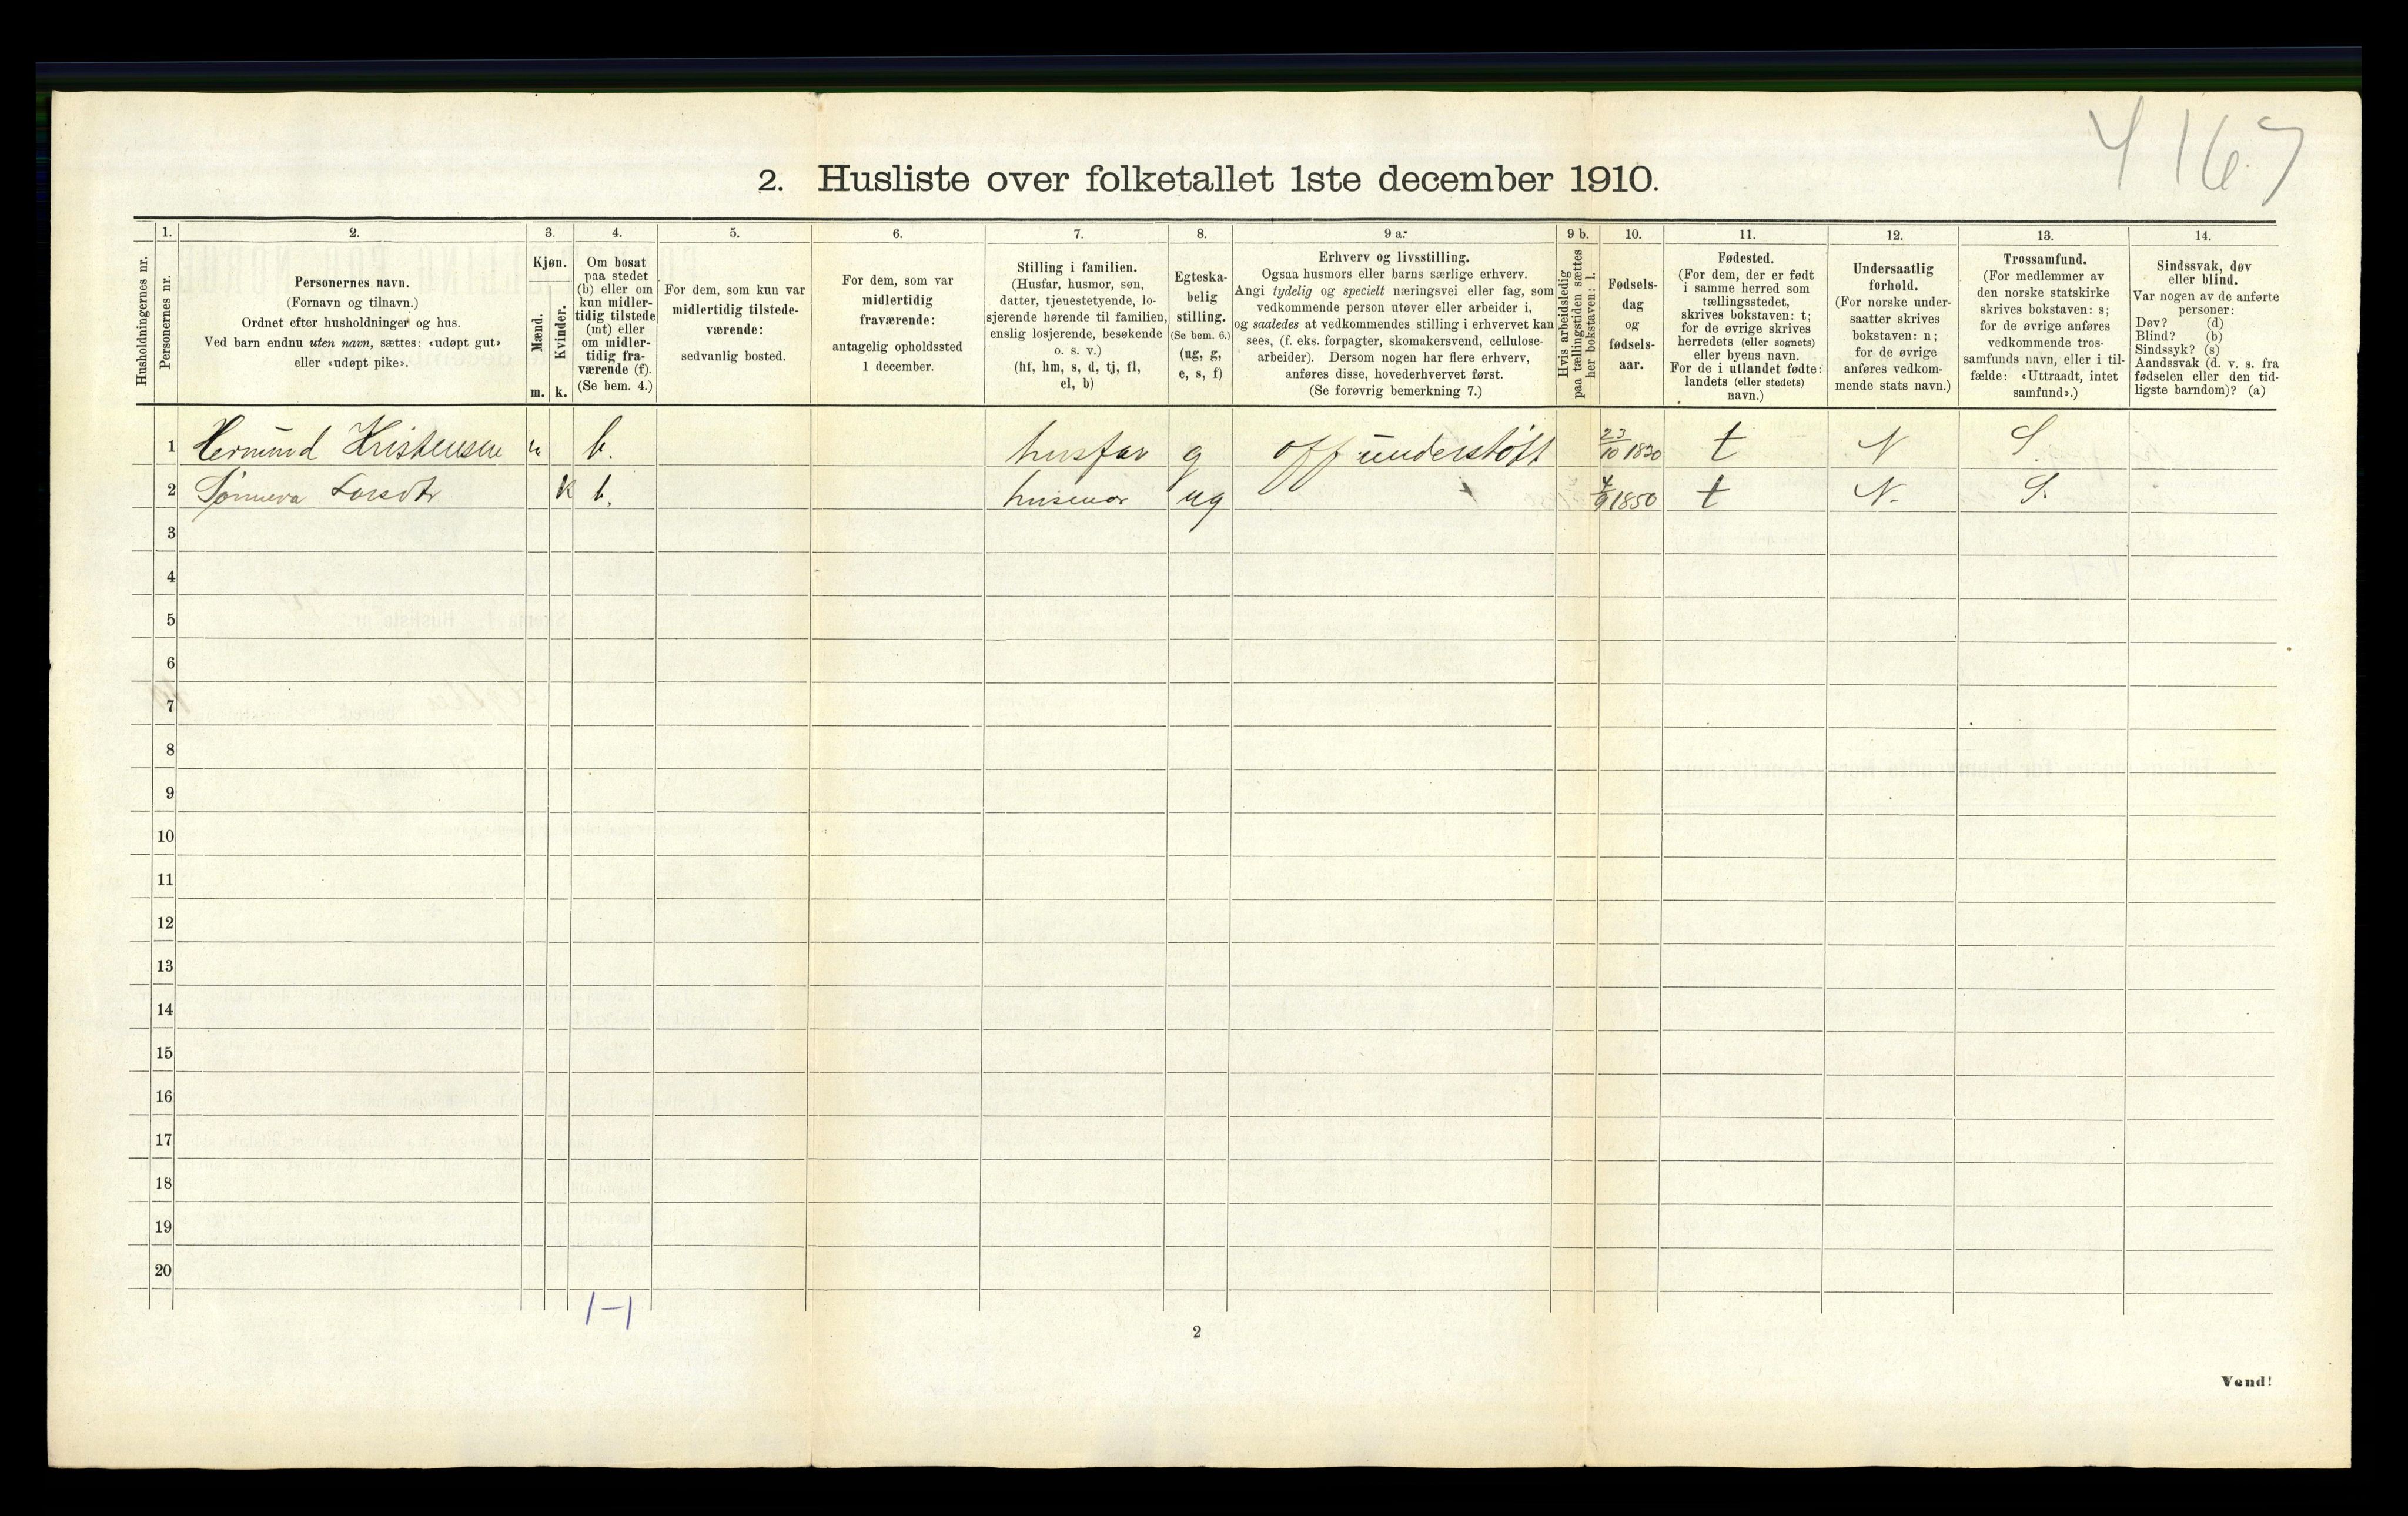 4167
2. Husliste over folketallet 1ste december 1910.
Husholdningernes nr.
1.
Personernes nr.
2.
Personernes navn.
(Fornavn og tilnavn.)
Ordnet efter husholdninger og hus.
Ved barn endnu uten navn, sættes: «udøpt gut»
eller «udøpt pike».
3.
Kjøn.
Mænd.
m.
Kvinder.
k.
4.
Om bosat
paa stedet
(b) eller om
kun midler-
tidig tilstede
(mt) eller
om midler-
tidig fra-
værende (f).
(Se bem. 4.)
5.
For dem, som kun var
midlertidig tilstede-
værende:
sedvanlig bosted.
6.
For dem, som var
midlertidig
fraværende:
antagelig opholdssted
1 december.
7.
Stilling i familien.
(Husfar, husmor, søn,
datter, tjenestetyende, lo-
sjerende hørende til familien,
enslig losjerende, besøkende
o. s. v.)
(hf, hm, s, d, tj, fl,
el, b)
8.
Egteska-
belig
stilling.
(Se bem. 6.)
(ug, g,
e, s, f)
9 a.
Erhverv og livsstilling.
Ogsaa husmors eller barns særlige erhverv.
Angi tydelig og specielt næringsvei eller fag, som
vedkommende person utøver eller arbeider i,
og saaledes at vedkommendes stilling i erhvervet kan
sees, (f. eks. forpagter, skomakersvend, cellulose-
arbeider). Dersom nogen har flere erhverv,
anføres disse, hovederhvervet først.
(Se forøvrig bemerkning 7.)
9 b.
Hvis arbeidsledig
paa tællingstiden sættes
her bokstaven: l.
10.
Fødsels-
dag
og
fødsels-
aar.
11.
Fødested.
(For dem, der er født
i samme herred som
tællingsstedet,
skrives bokstaven: t;
for de øvrige skrives
herredets (eller sognets)
eller byens navn.
For de i utlandet fødte:
landets (eller stedets)
navn.)
12.
Undersaatlig
forhold.
(For norske under-
saatter skrives
bokstaven: n;
for de øvrige
anføres vedkom-
mende stats navn.)
13.
Trossamfund.
(For medlemmer av
den norske statskirke
skrives bokstaven: s;
for de øvrige anføres
vedkommende tros-
samfunds navn, eller i til-
fælde: «Uttraadt, intet
samfund».)
14.
Sindssvak, døv
eller blind.
Var nogen av de anførte
personer:
Døv? (d)
Blind? (b)
Sindssyk? (s)
Aandssvak (d. v. s. fra
fødselen eller den tid-
ligste barndom)? (a)
1 Hermund Kristensen m b. husfar g off understøtt 23/10 1830 t N S.
2 Sønneva Larsdtr k b. husmor ug 4/9 1850 t N. S.
3
4
5
6
7
8
9
10
11
12
13
14
15
16
17
18
19
20
1-1
2
Vend!